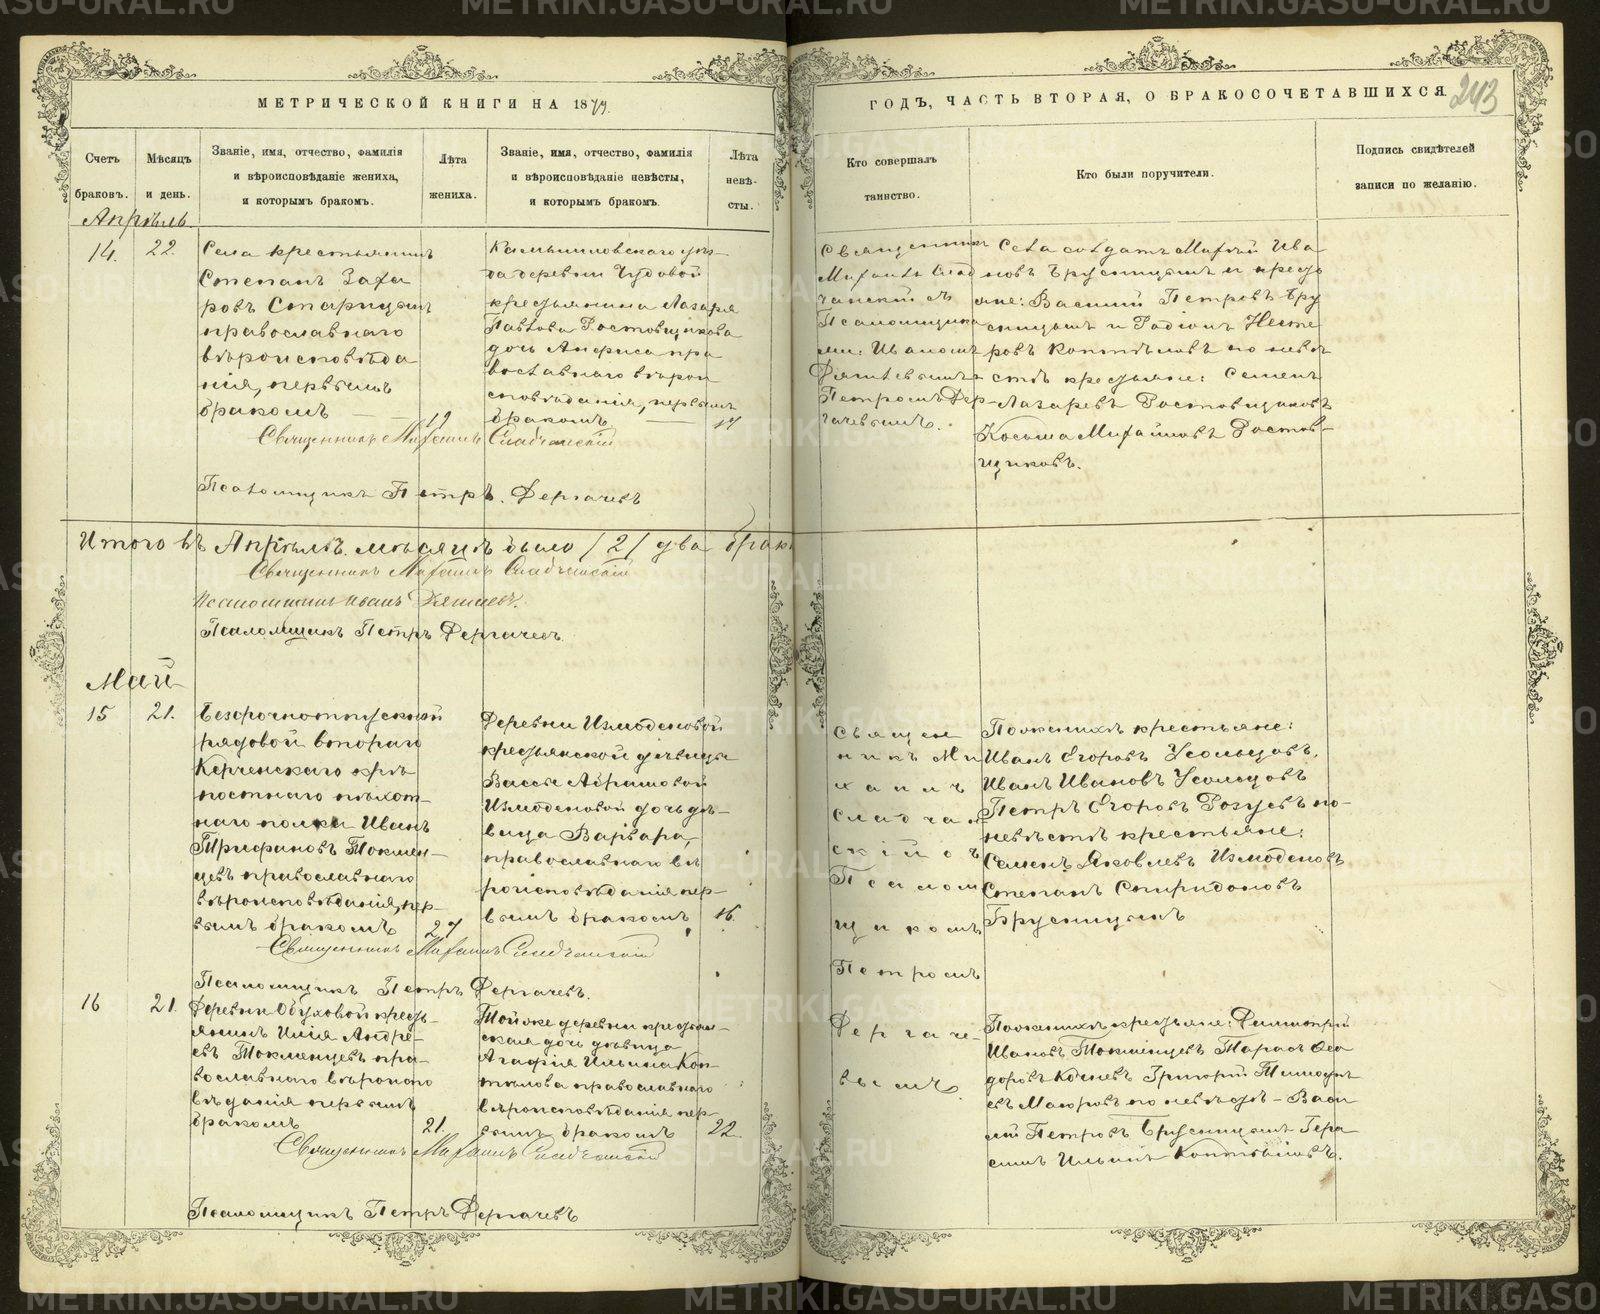 МЕТРИЧЕСКОЙ КНИГИ НА 1879.
ГОДЪ, ЧАСТЬ ВТОРАЯ, О БРАКОСОЧЕТАВШИХСЯ.
243
Счетъ браковъ.
Мѣсяцъ и день.
Званіе, имя, отчество, фамилія
и вѣроисповѣданіе жениха,
и которымъ бракомъ.
Лѣта жениха.
Званіе, имя, отчество, фамилія
и вѣроисповѣданіе невѣсты,
и которымъ бракомъ.
Лѣта невѣ-
сты.
Кто совершалъ
таинство.
Кто были поручители.
Подпись свидѣтелей
записи по желанію.
Апрѣль.
14.
22.
Села крестьянинъ
Степанъ Заха
ровъ Старицынъ
православнаго
вѣроисповѣда
нія, первымъ
бракомъ
19
Камышловскаго уѣз-
да деревни Чудовой
крестьянина Лазаря
Павлова Ростовщикова
дочь Анфиса пра
вославнаго вѣрои
сповѣданія, первымъ
бракомъ
17
Священникъ
Михаилъ Слад
чанскій съ
Псаломщика
ми: Иваномъ
Петромъ Дер-
гачевымъ.
Села солдатъ Матвѣй Ива
новъ Брусницынъ и кресть
яне: Василій Петровъ Бру
сницынъ и Родіонъ Несте
ровъ Коптѣловъ по невѣ
стѣ крестьяне: Семенъ
Лазаревъ Ростовщиковъ
Косьма Михайловъ Ростов-
щиковъ.
Священникъ Михаилъ Сладчанскій
Псаломщикъ Петръ Дергачевъ
Итого въ Апрѣлѣ мѣсяцѣ было /2/ два брака
Священникъ Михаилъ Сладчанскій
Псаломщикъ Иванъ
Псаломщикъ Петръ Дергачевъ
Май
15
21.
Безсрочноотпускной
рядовой втораго
Керченскаго крѣ
постнаго пѣхот-
наго полка Иванъ
Трифановъ Токмен-
цевъ православнаго
вѣроисповѣданія, пер-
вымъ бракомъ
27
Деревни Измоденовой
крестьянской дѣвицы
Вассы Абрамовой
Измоденовой дочь дѣ-
вица Варвара,
православнаго вѣ
роисповѣданія пер-
вымъ бракомъ
16.
Священ
никъ Ми
хаилъ
Сладчан
скій съ
Псалом
щикомъ
Петромъ
Дергаче-
вымъ.
Поженихѣ крестьяне:
Иванъ Егоровъ Усольцовъ,
Иванъ Ивановъ Усольцовъ
Петръ Егоровъ по-
невѣстѣ крестьяне:
Семенъ Яковлевъ Измоденовъ
Степанъ Спиридоновъ
Брусницынъ
Священникъ Михаилъ Сладчанскій
Псаломщикъ Петръ Дергачевъ.
16
21.
Деревни Обуховой кресть-
янинъ Илія Андре-
евъ Токменцевъ пра-
вославнаго вѣроиспо
вѣданія первымъ
бракомъ
21.
Тойже деревни крестьян-
ская дочь дѣвица
Агафія Ильина Коп-
тѣлова православнаго
вѣроисповѣданія пер-
вымъ бракомъ
22.
Поженихѣ крестьяне:
Ивановъ Токменцевъ Тарасъ Ѳео
доровъ Григорій Тимоѳе
евъ по невѣстѣ - Васи
лій Петровъ Брусницынъ Гера
симъ Ильинъ Коптѣловъ.
Священникъ Михаилъ Сладчанскій
Псаломщикъ Петръ Дергачевъ
METRIKI.GASO-URAL.RU